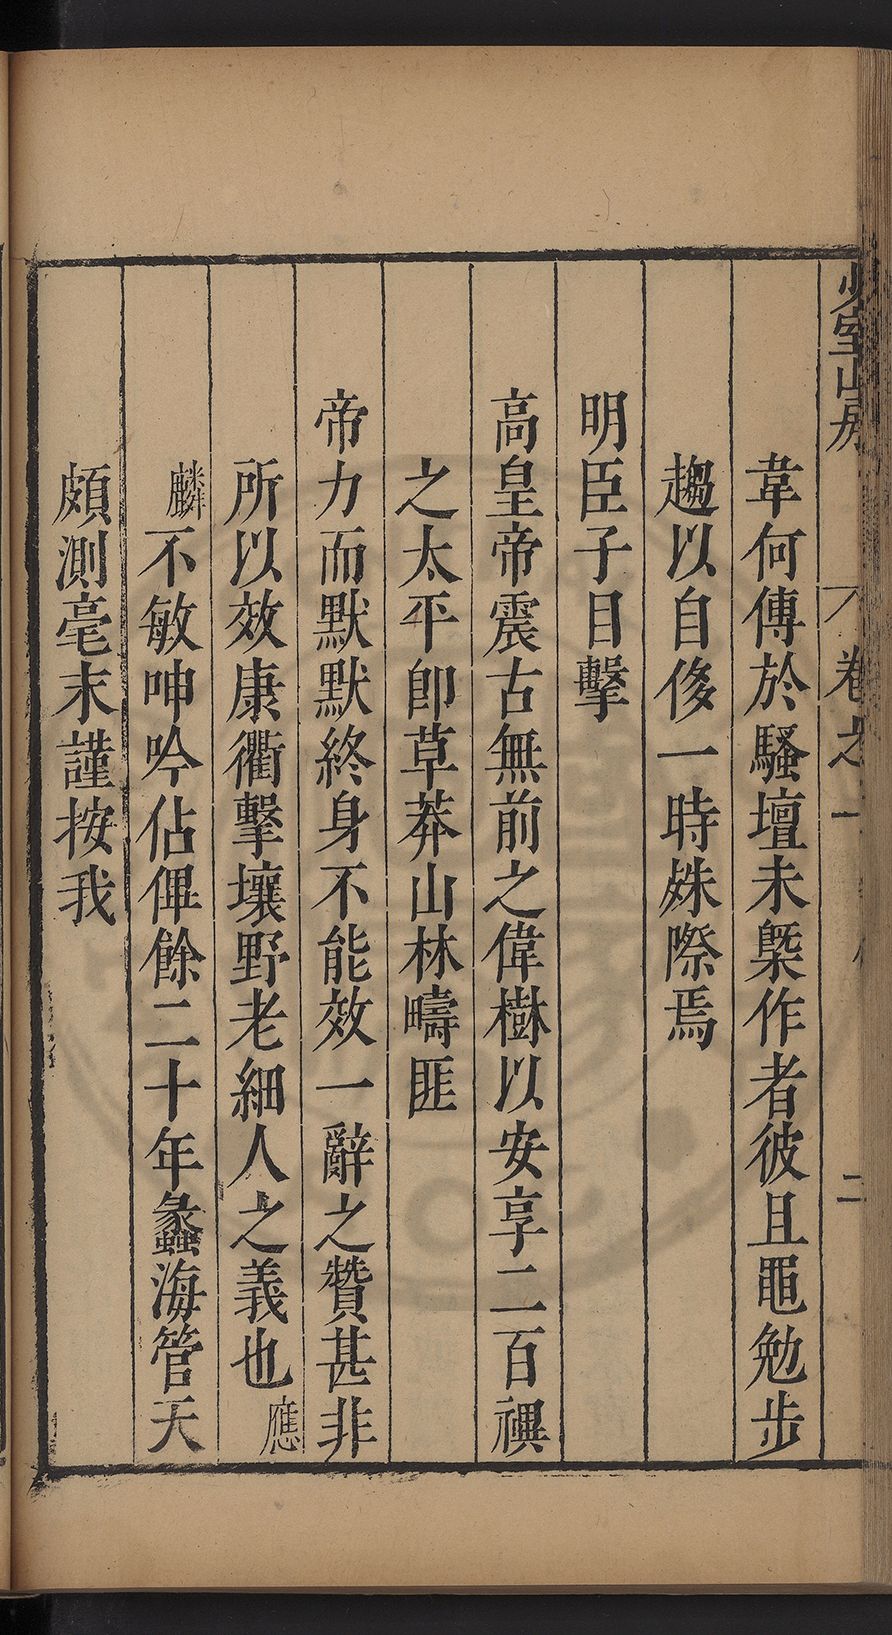 少室山房
卷之一
二
韋何傳於騷壇未槩作者彼且黽勉步
趨以自俊一時殊際焉
明臣子目擊
高皇帝震古無前之偉樹以安享二百禩
之太平卽草莽山林疇匪
帝力而默默終身不能效一辭之贊甚非
所以效康衢擊壤野老細人之義也應
麟不敏呻吟佔𠌯餘二十年蠡海管天
頗測毫末謹按我